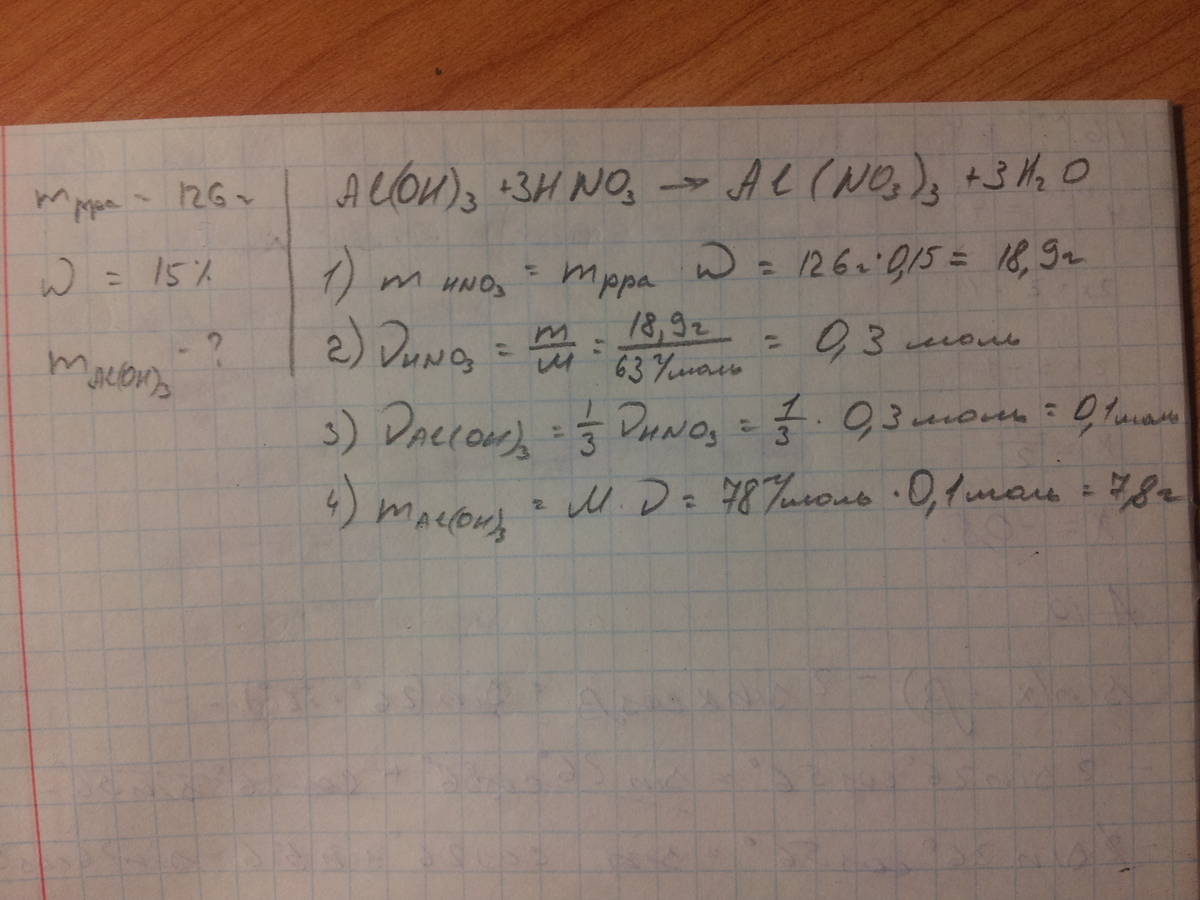 m р-ра = 126 г
ω = 15%
m Al(OH)₃ - ?
Al(OH)₃ + 3HNO₃ → Al(NO₃)₃ + 3H₂O
1) m HNO₃ = m р-ра ω = 126 г · 0,15 = 18,9 г
2) ν HNO₃ = m/M = 18,9 г / 63 г/моль = 0,3 моль
3) ν Al(OH)₃ = 1/3 ν HNO₃ = 1/3 · 0,3 моль = 0,1 моль
4) m Al(OH)₃ = M · ν = 78 г/моль · 0,1 моль = 7,8 г